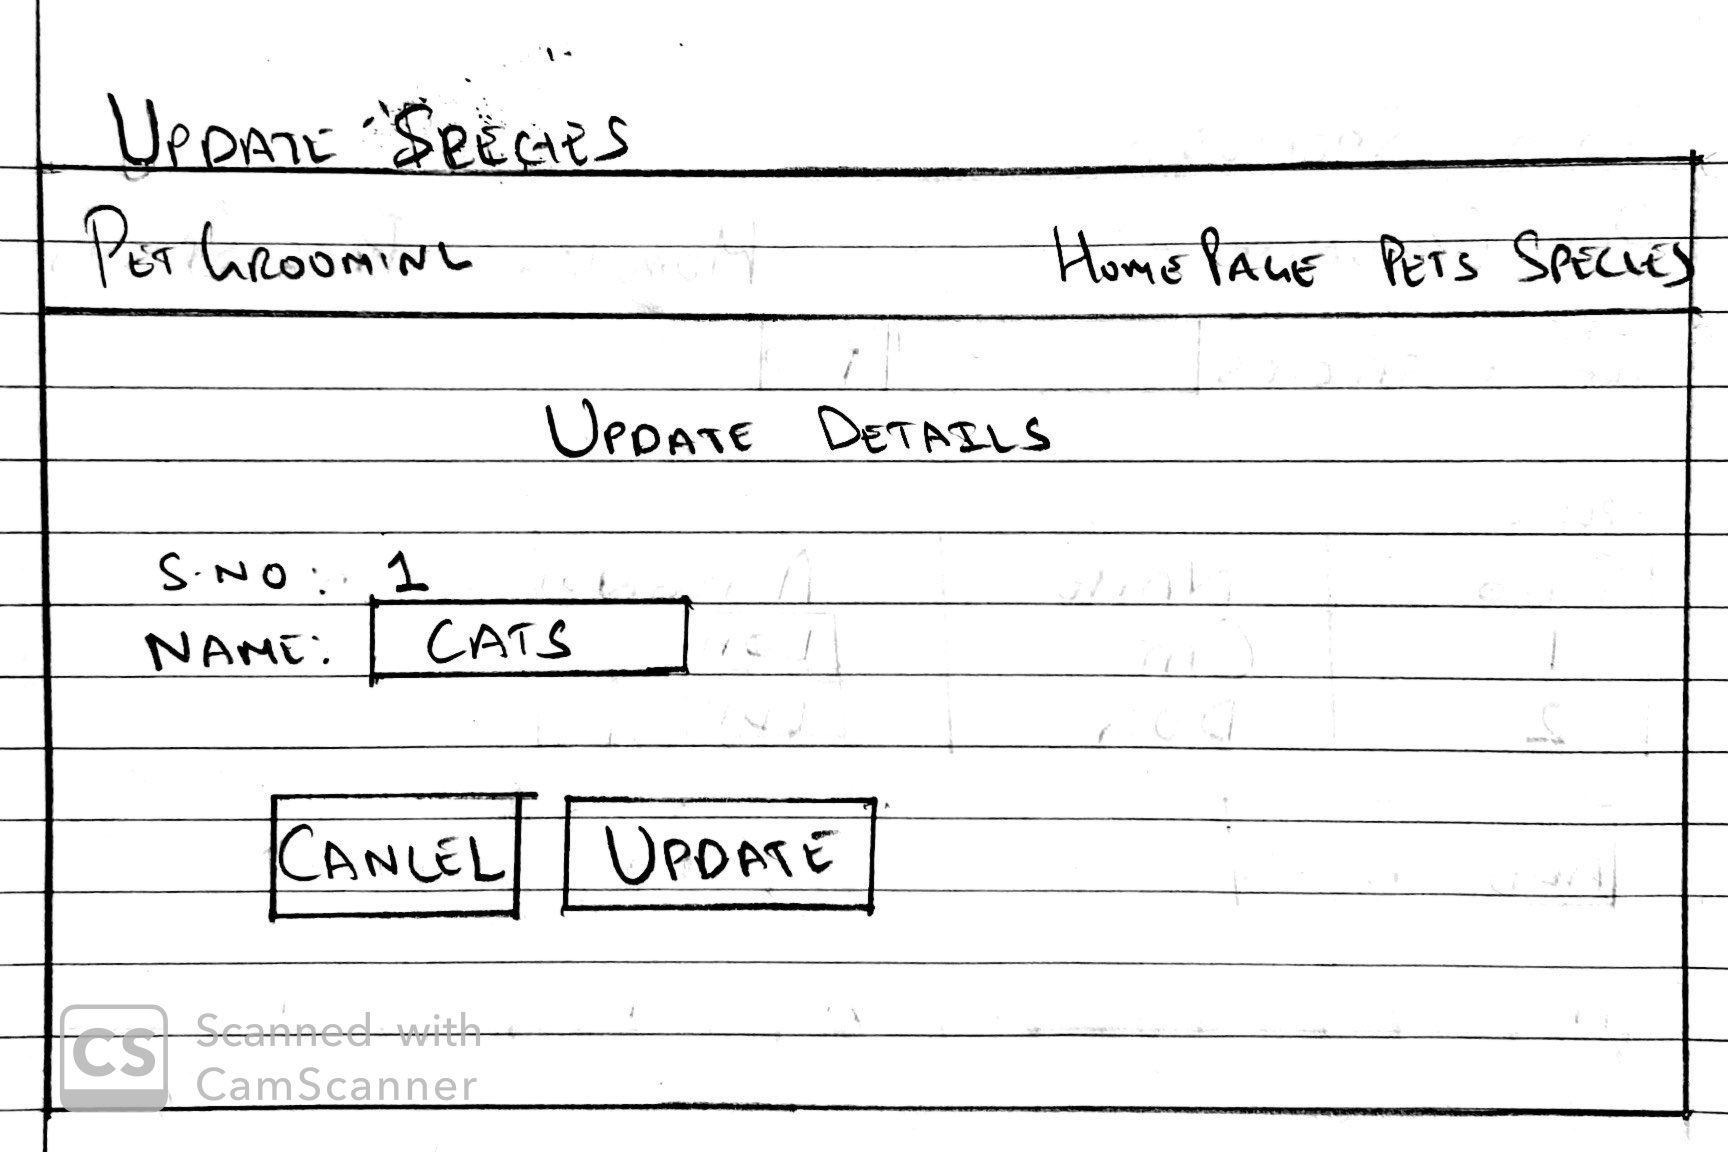 UPDATE SPECIES
PET GROOMING
HOME PAGE PETS SPECIES
UPDATE DETAILS
S.NO: 1
NAME: CATS
CANCEL UPDATE
CS Scanned with
CamScanner